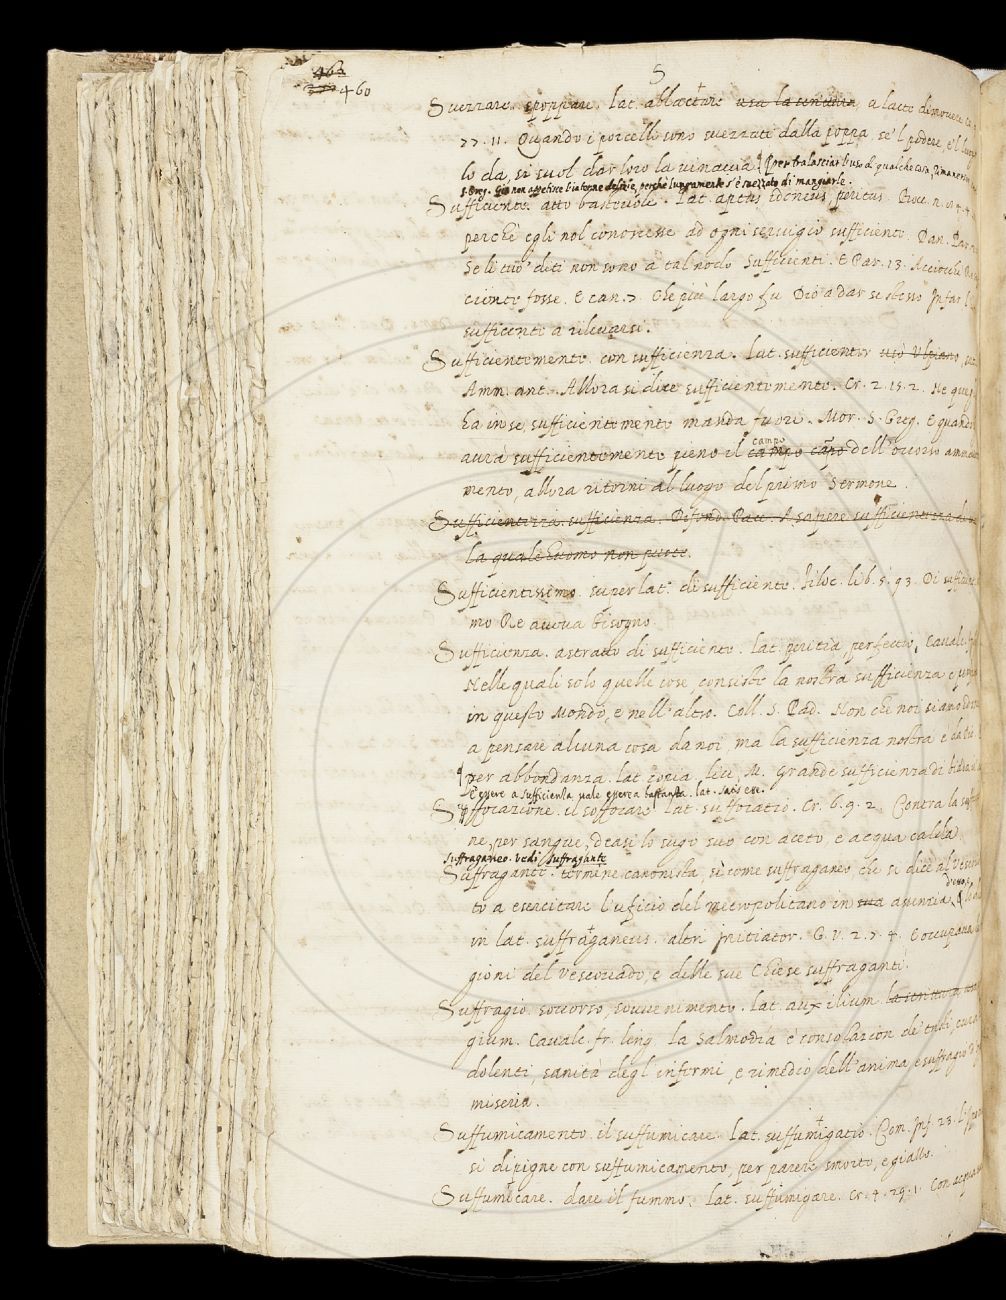 S
463
460
Svezzare. spoppare. lat. ablactare usa la scrittura, a lacte dimovere. Cr.
77. 11. Quando i porcelli sono svezzati dalla poppa, se'l podere, e'l luogo
lo da, si suol dar loro la vinaccia. ¶ per tralasciar l'uso di qualche cosa, Rimanersene
S. Greg. perche lungamente s'è svezzato di mangiarle.
Sufficiente. atto bastevole. lat. aptus, idoneus, peritus. Bocc. n.
perchè egli nol conoscesse ad ogni servigio sufficiente. Dan. Par.
Se li tuo' diti non sono a tal nodo Sufficienti. E Par. 13. Acciocchè Re
ciente fosse. E can. 7. Che più largo fu Dio a dar se stesso In far l'
sufficente a rilevarsi.
Sufficientemente. con sufficienza. Lat. sufficienter usò Ulpiano,
Amm. ant. Allora si dice sufficientemente. Cr. 2. 15. 2. Ne que
ha in se, sufficientemente manda fuori. Mor. S. Greg. E quando
aurà sufficientemente pieno il campo capo campo dell'occorso
mento, allora ritorni al luogo del primo Sermone.
Sufficientezza. sufficienza. Difend. Pace. A sapere sufficientezza di
la quale huomo non puote.
Sufficientissimo. superlat. di sufficiente. Filoc. lib. 5. 93. Di sufficientissi
mo Re aveva bisogno.
Sufficienza. astratto di sufficiente. lat. peritia, perfectio. Cavalc.
Nelle quali solo quelle cose, consiste la nostra sufficienza e
in questo Mondo, e nell'altro. Coll. S. Pad. Non che noi siamo
a pensare alcuna cosa da noi, ma la sufficienza nostra è da Dio
¶ per abbondanza. lat. copia, Grande sufficienza di
Essere a sufficienza vale essere a bastanza. lat. satis esse.
Suffocazione. il soffocare lat. suffocatio. Cr. 6. 9. 2. Contra la
ne, per sangue, deasi lo sugo suo con aceto, e acqua calda
Suffraganeo. vedi Suffragante
Suffragante. termine canonista, sì come suffraganeo, che si dice al Vescovo
to a esercitare l'uficio del metropolitano in sua assenzia,
in lat. suffraganeus. altri Initiator. G. V. 2. 7. 4. E occupava
gioni del Vescovado, e delle sue Chiese suffraganti.
Suffragio. soccorso, sovvenimento. Lat. auxilium. la scrittura
gium. Cavalc. fr. ling. La Salmodia è consolazion de' tristi,
dolenti, sanità degl' infermi, e rimedio dell'anima, e suffragio
miseria.
Suffumicamento. il suffumicare. Lat. suffumigatio. Com. Inf. 23.
si dipigne con suffumicamento, per parere smorto, e giallo.
Suffumicare. dare il fummo. Lat. suffumigare. Cr. 4. 29. 1. Con acqua